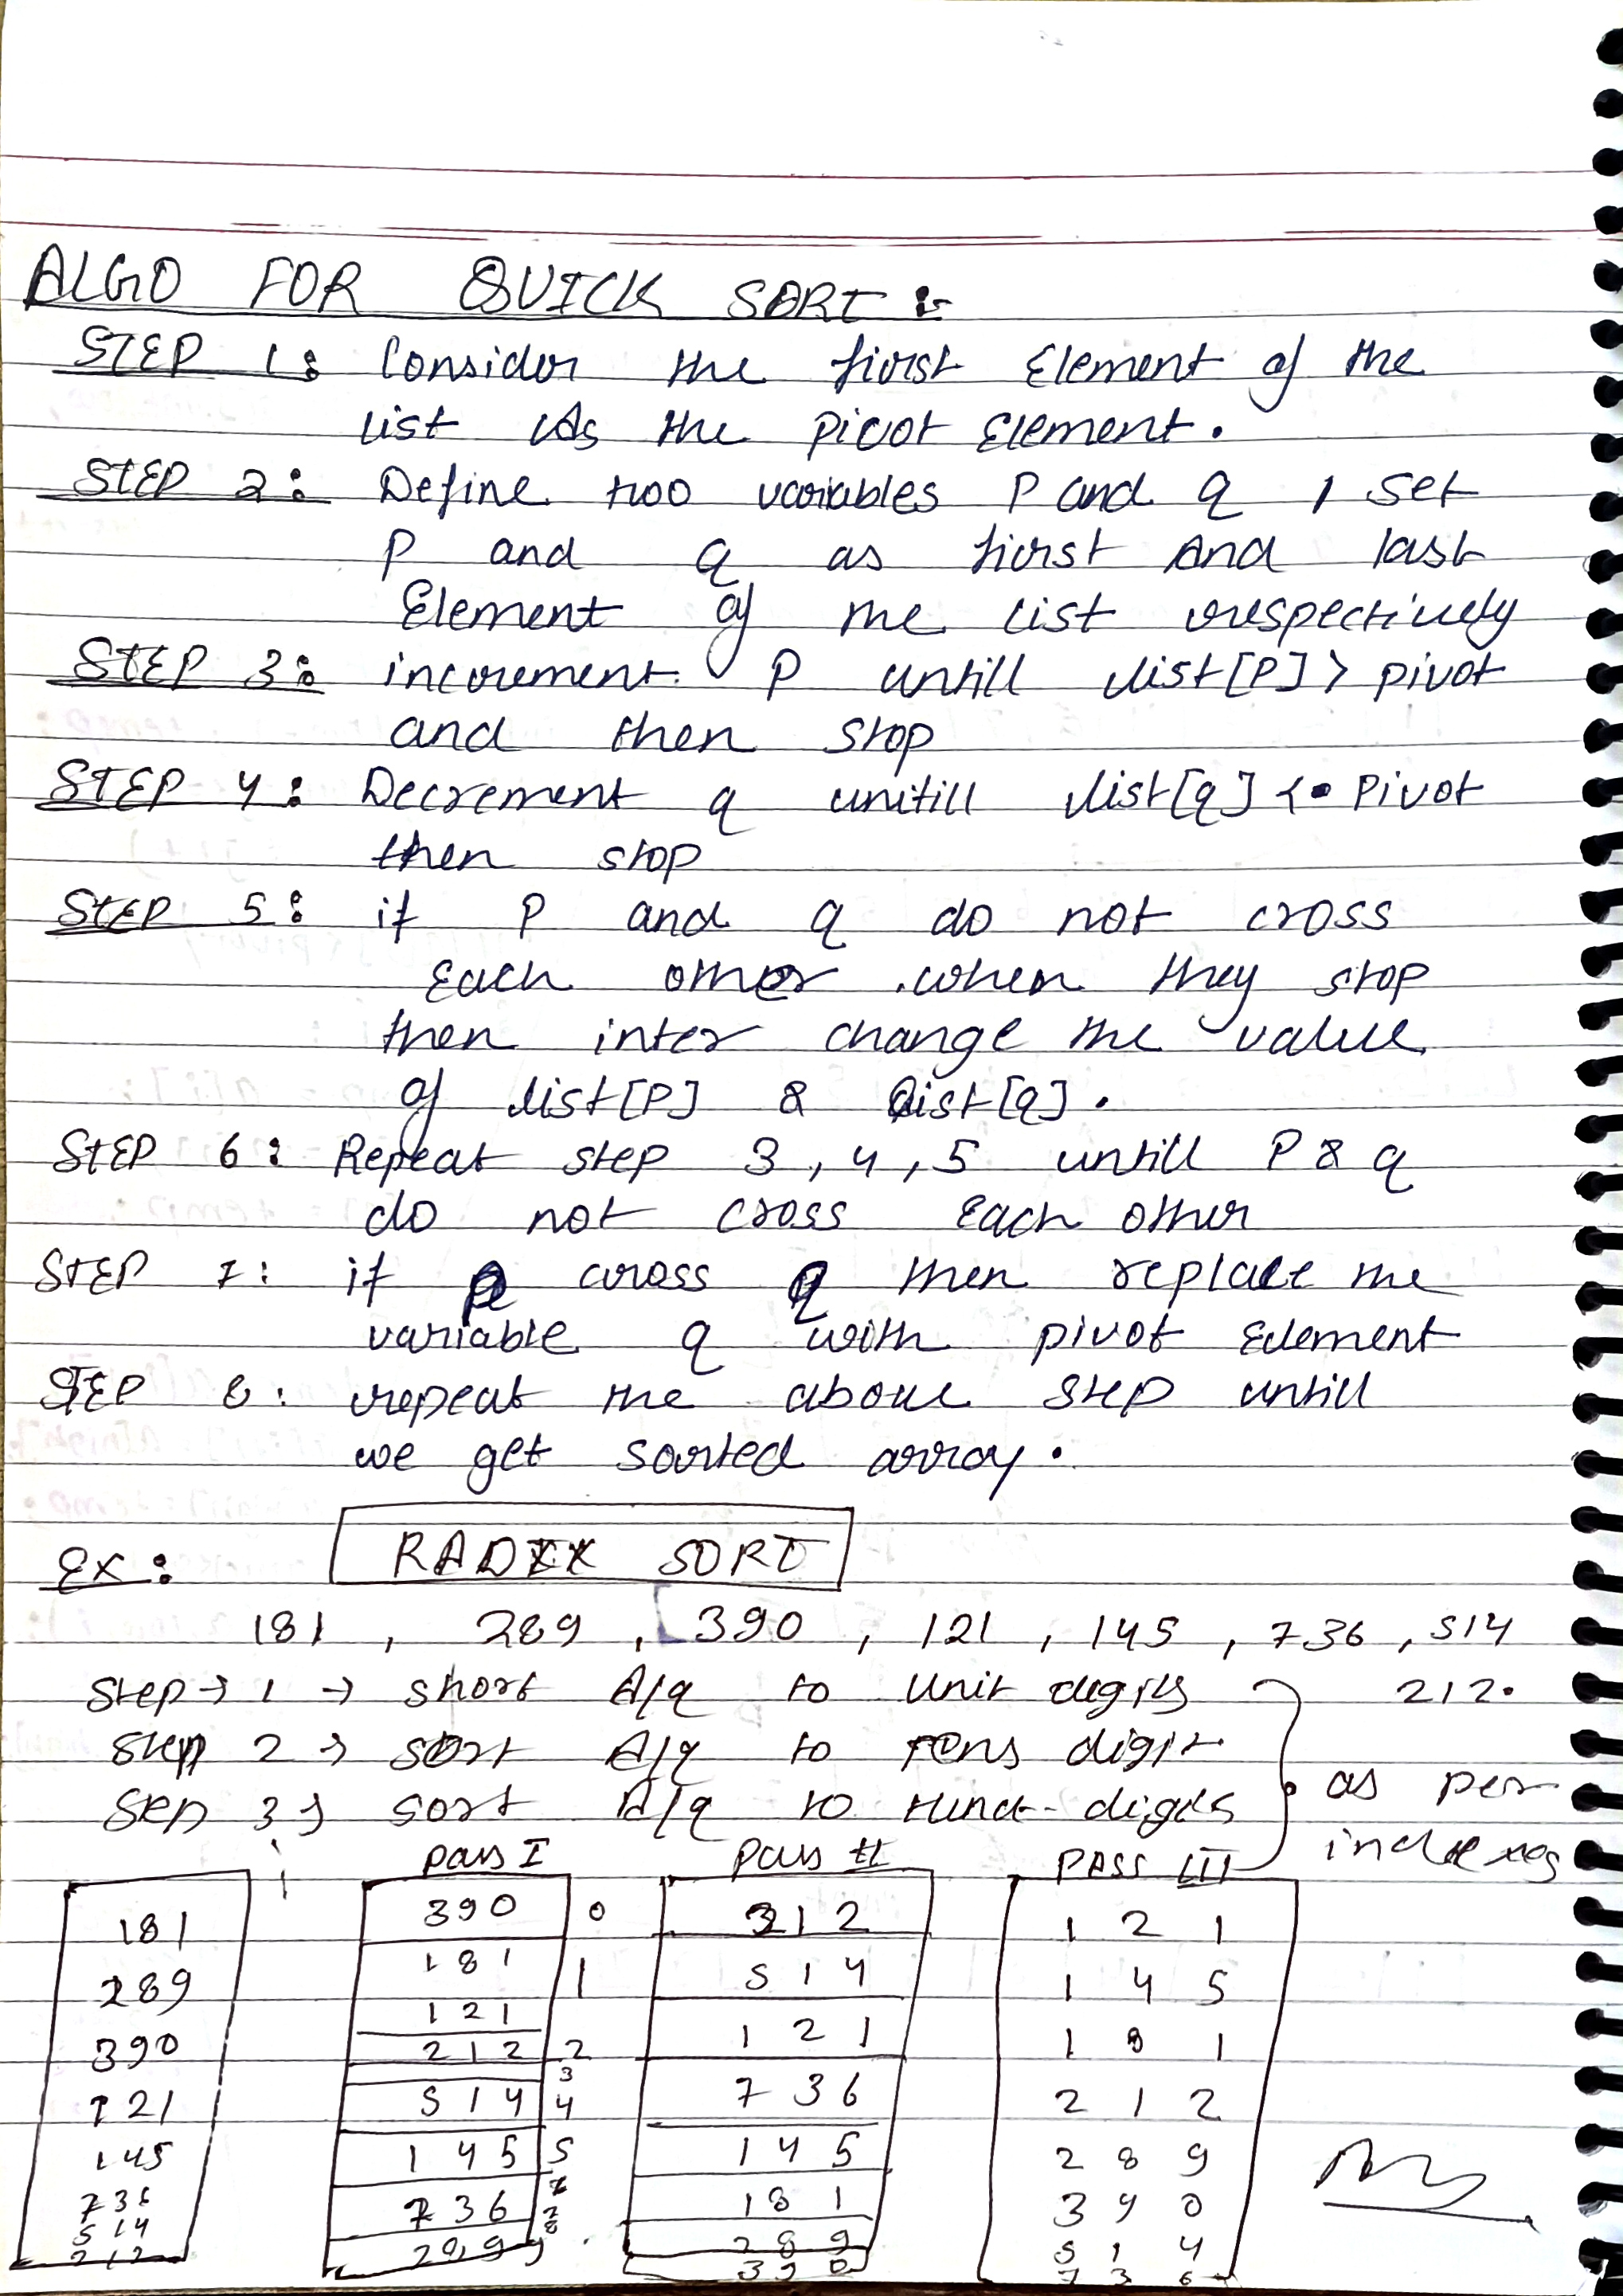 ALGO FOR QUICK SORT :-
STEP 1: Consider the first Element of the
list As the pivot Element.
STEP 2: Define two variables P and q , set
P and q as first And last
Element of the list respectively
STEP 3: increment P untill list[P] > pivot
and then stop
STEP 4: Decrement q unitill list[q] < Pivot
then stop
STEP 5: if P and q do not cross
Each other when they stop
then inter change the value
of list[P] & list[q].
STEP 6: Repeat step 3, 4, 5 untill P & q
do not cross Each other
STEP 7: if P cross q then replace the
variable q with pivot Element
STEP 8: repeat the above step untill
we get sorted array.
Ex: RADIX SORT
181 , 289 , 390 , 121 , 145 , 736 , 514
step → 1 → short A/q to Unit degits 212.
step 2 → sort A/q to tens digit
step 3 → sort A/q to Hund- digits as per
indexes
pass I pass II PASS III
181 390 0 312 1 2 1
289 181 1 514 1 4 5
390 121 121 1 8 1
121 212 2 736 2 1 2
3
145 514 4 145 2 8 9
736 145 5 181 3 9 0
514 736 7 289 5 1 4
212 8 390 7 3 6
9